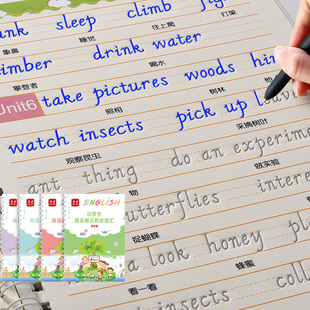 ink sleep climb fig
大象 睡觉 往上爬 打架
imber drink water
攀登者 喝水
Unit6 take pictures woods hin
照相 树林
watch insects pick up leavin
观察昆虫 采摘树叶
ant thing do an experime
做实验
butterflies intere
捉蝴蝶
a look honey pl
看一看 蜂蜜
insects coll
ENGLISH
小学生
英语单元同步词汇